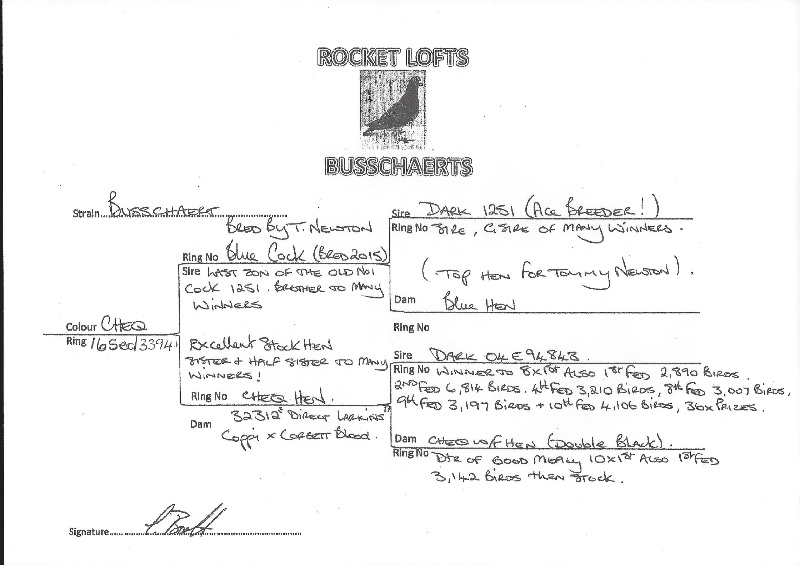 ROCKET LOFTS
BUSSCHAERTS
Strain BUSSCHAERT
BRED BY T. NEWTON
Ring No Blue Cock (BRED 2015)
Sire LAST SON OF THE OLD NO1
COCK 1251. BROTHER TO MANY
WINNERS
Colour CHEQ
Ring 16 Sed 13394
Excellent STOCK HEN
SISTER + HALF SISTER TO MANY
WINNERS!
Ring No CHEQ HEN.
Dam 32312 DIRECT LARKINS
COPPI x CORBETT BLOOD.
Sire DARK 1251 (ACE BREEDER!)
Ring No SIRE, G.SIRE OF MANY WINNERS.
(TOP HEN FOR TOMMY NEWTON).
Dam Blue HEN
Ring No
Sire DARK 04E94843.
Ring No WINNER TO 8x1st ALSO 1st FED 2,890 BIRDS.
2ND FED 6,814 BIRDS. 4th FED 3,210 BIRDS, 8th FED 3,007 BIRDS,
9th FED 3,197 BIRDS + 10th FED 4,106 BIRDS, 36x PRIZES.
Dam CHEQ W/F HEN (Double Black).
Ring No DTR OF GOOD MEALY 10x1st ALSO 1st FED
3,142 BIRDS THEN STOCK.
Signature